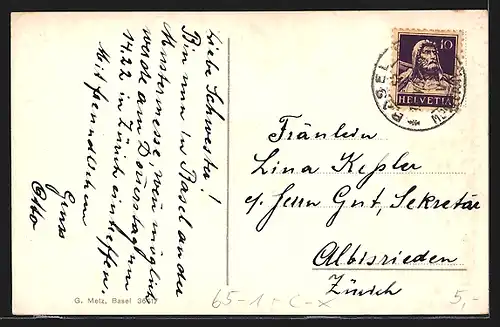 Liebe Schwester!
Bin nun in Basel an der
Mustermesse, wenn möglich
werde am Donnerstag um
14.22 in Zürich eintreffen.
Mit freundlichem
Gruss
Otto
10
HELVETIA
BASEL
Fräulein
Lina Keßler
c/o Herrn Gut, Sekretär
Albisrieden
Zürich
G. Metz, Basel
65-1 - C-X
5,-